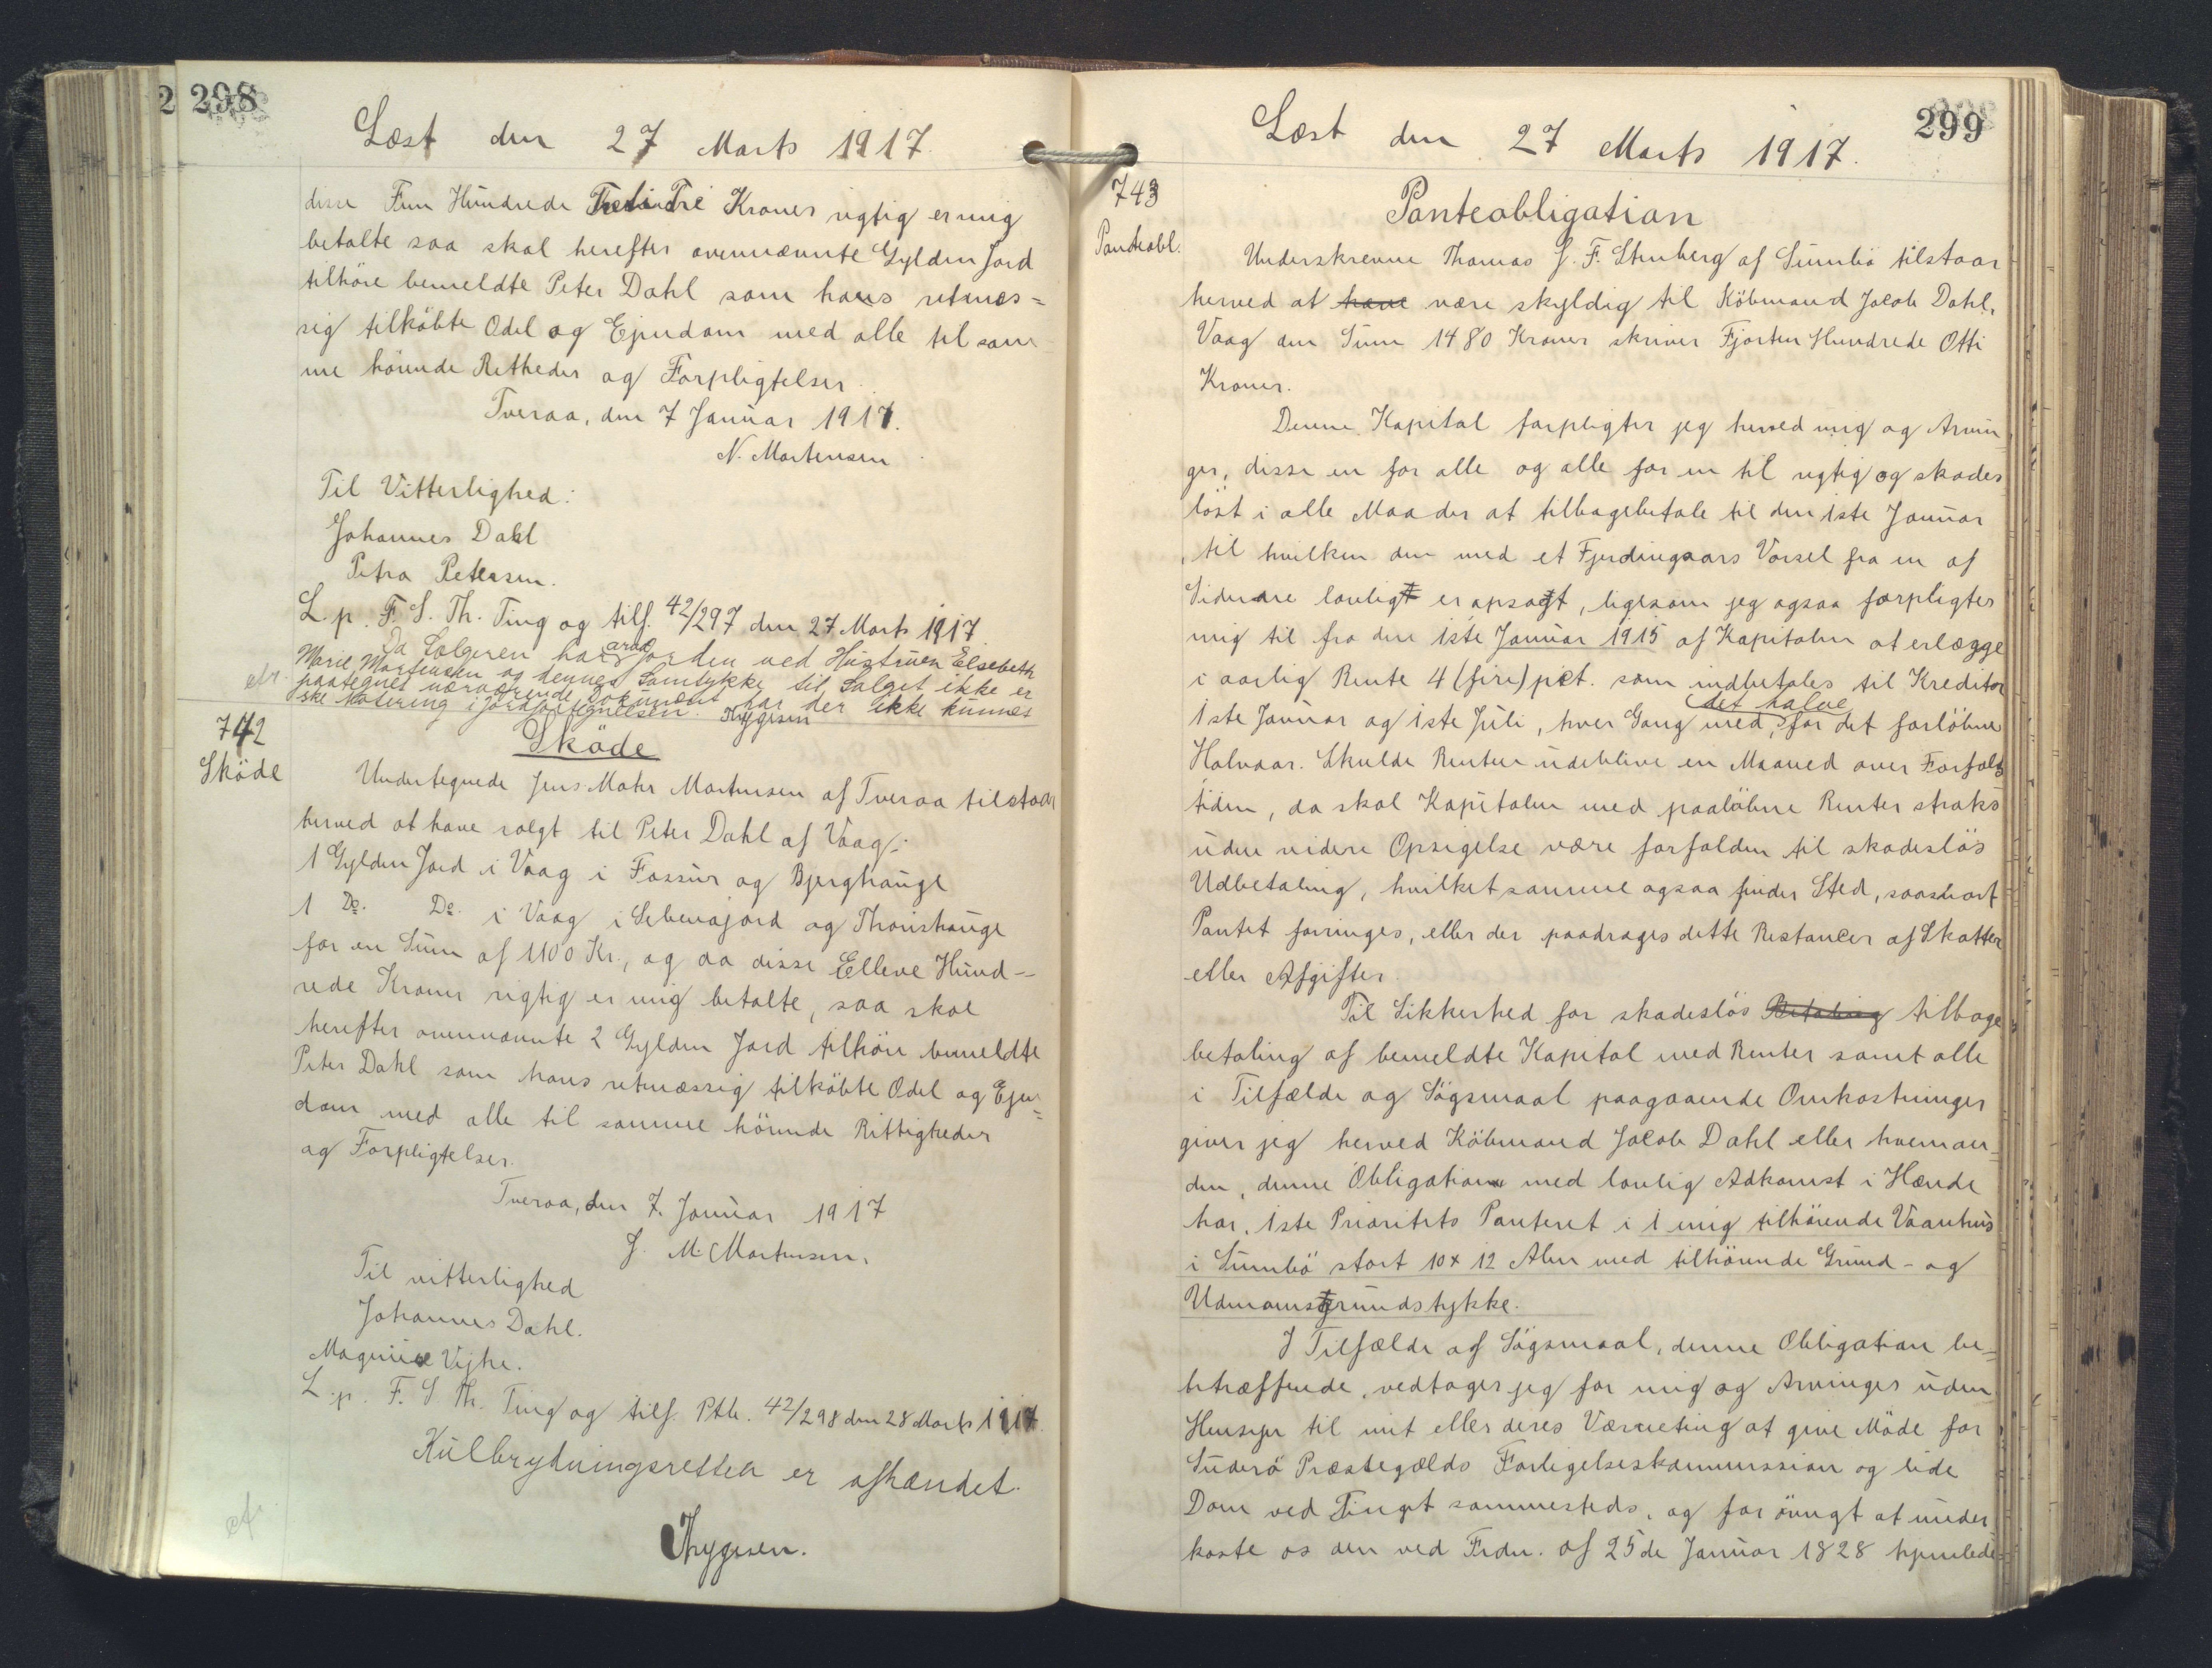 298
Læst den 27 Marts 1917.
disse Fem Hundrede Treti Tre Kroner rigtig er mig
betalte saa skal herefter ovennævnte Gylden Jord
tilhöre bemeldte Peter Dahl som hans retmæs=
sig tilköbte Odel og Ejendom med alle til sam
me hörende Retheder og Forpligtelser.
Tveraa, den 7 Januar 1917.
N. Mortensen
Til Vitterlighed:
Johannes Dahl
Petra Petersen.
L. p. F. S. Th. Ting og tilf. 42/297 den 27 Marts 1917.
Da Sælgeren har arvet Jorden ved Hustruen Elsebeth
Marie Mortensen og dennes Samtykke til Salget ikke er
paategnet nærværende Dokument har der ikke kunnet
ske Notering i Jordfortegnelsen. Thygesen
742
Sköde
Sköde
Undertegnede Jens Mohr Mortensen af Tveraa tilstaar
herved at have solgt til Peter Dahl af Vaag:
1 Gylden Jord i Vaag i Fossur og Bjerghauge
1 Do. Do. i Vaag i Sebenajord og Thorishauge
for en Sum af 1100 Kr., og da disse Elleve Hund-
rede Kroner rigtig er mig betalte, saa skal
herefter ovennævnte 2 Gylden Jord tilhöre bemeldte
Peter Dahl som hans retmæssig tilköbte Odel og Ejen=
dom med alle til samme hörende Rettigheder
og Forpligtelser.
Tveraa, den 7. Januar 1917
J. M. Mortensen.
Til vitterlighed
Johannes Dahl.
Magnus Vejhe.
L. p. F. S Th. Ting og tilf. Ptb. 42/298 den 28 Marts 1917.
Kulbrydningsretten er afhændet.
Thygesen.
299
Læst den 27 Marts 1917.
743
Panteobl.
Panteobligation
Underskrevne Thomas J. F. Stenberg af Sumbö tilstaar
herved at have være skyldig til Köbmand Jacob Dahl,
Vaag den Sum 1480 Kroner skriver Fjorten Hundrede Otti
Kroner.
Denne Kapital forpligter jeg herved mig og Arvin
ger, disse en for alle og alle for en til rigtig og skades
löst i alle Maader at tilbagebetale til den 1ste Januar
til hvilken den med et Fjerdingaars Varsel fra en af
Siderne lovligt er opsagt, ligesom jeg ogsaa forpligter
mig til fra den 1ste Januar 1915 af Kapitalen at erlægge
i aarlig Rente 4 (fire) pct. som indbetales til Kreditor
1ste Januar og 1ste Juli, hver Gang med det halve for det forlöbne
Halvaar. Skulde Renten udeblive en Maaned over Forfalds
tiden, da skal Kapitalen med paalöbne Renter straks
uden videre Opsigelse være forfalden til skadeslös
Udbetaling, hvilket samme ogsaa finder Sted, saasnart
Pantet forringes, eller der paadrages dette Restancer af Skatter
eller Afgifter.
Til Sikkerhed for skadeslös Betaling tilbage
betaling af bemeldte Kapital med Renter samt alle
i Tilfælde og Sögsmaal paagaaende Omkostninger
giver jeg herved Köbmand Jacob Dahl eller hveman
den, denne Obligation med lovlig Adkomst i Hænde
har, 1ste Prioritets Panteret i 1 mig tilhörende Vaanhus
i Sumbö stort 10x12 Alen med tilhörende Grund- og
Udmarksgrundstykke.
I Tilfælde af Sögsmaal, denne Obligation be=
træffende, vedtager jeg for mig og Arvinger uden
Hensyn til mit eller deres Værneting at give Möde for
Suderö Præstegælds Forligelseskommission og lide
Dom ved Tinget sammesteds, og for övrigt at under
kaste os den ved Frdn. af 25de Januar 1828 hjemlede